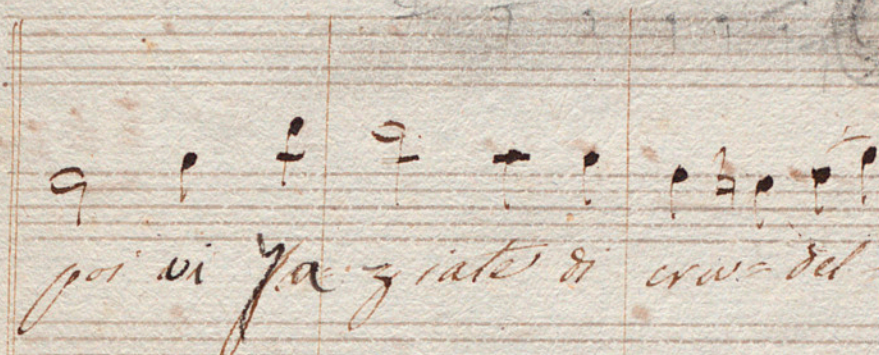 poi vi sa = ziate di cru = del -